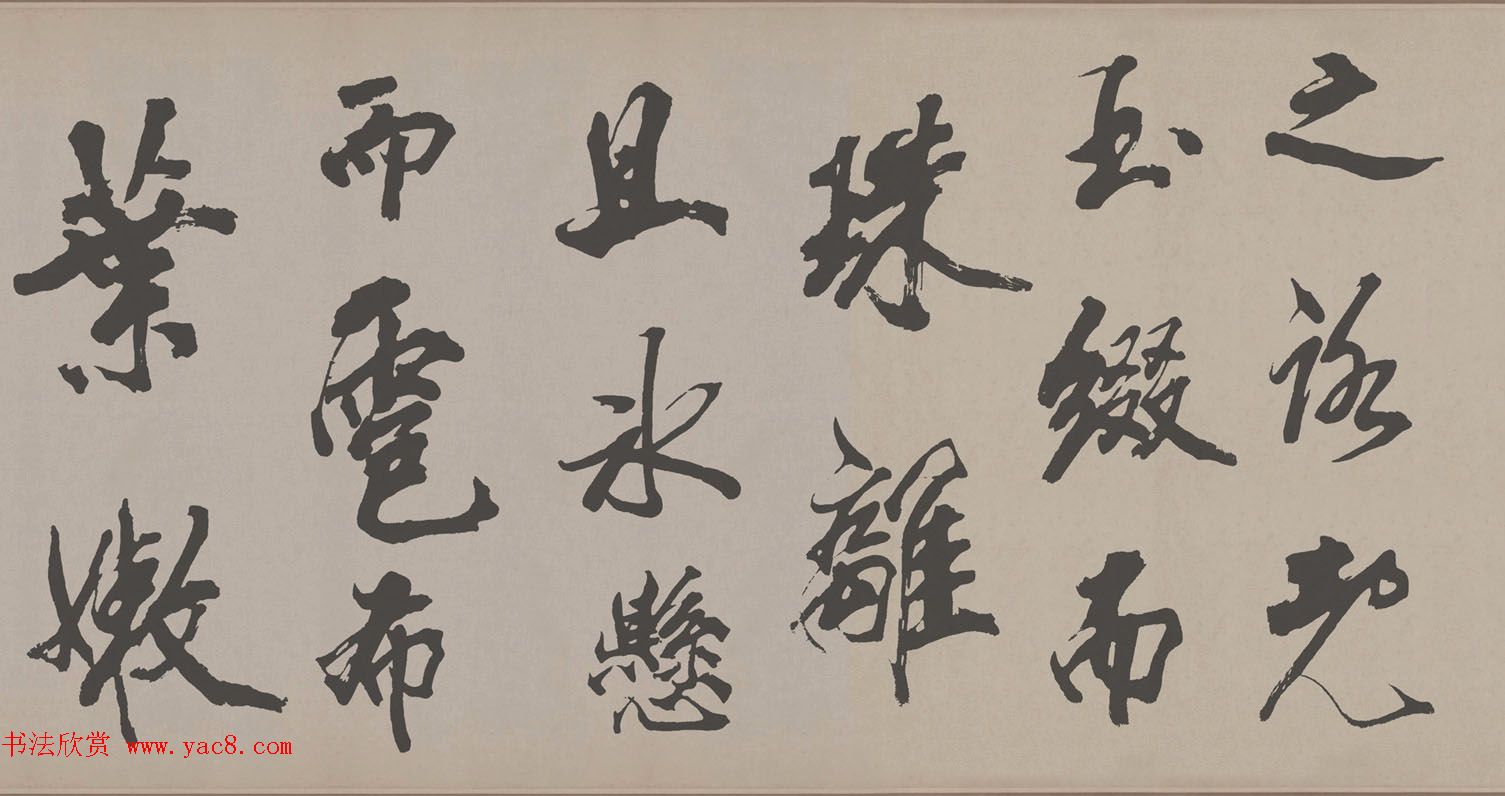 之
玉綴而
珠離
且冰懸
而雹布
葉嫩
书法欣赏 www.yac8.com